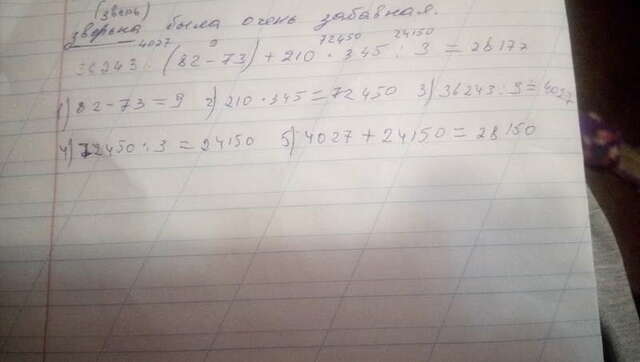 (зверь)
зверька была очень забавная.
4027 9 72450 24150
36243 : (82-73) + 210 · 345 : 3 = 28177
1) 82-73=9 2) 210·345=72450 3) 36243:9=4027
4) 72450:3=24150 5) 4027+24150=28150